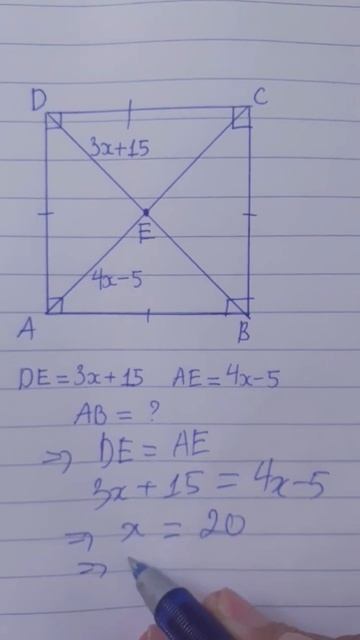 D C
3x+15
E
4x-5
A B
DE=3x+15 AE=4x-5
AB = ?
⇒ DE = AE
3x+15 = 4x-5
⇒ x = 20
⇒